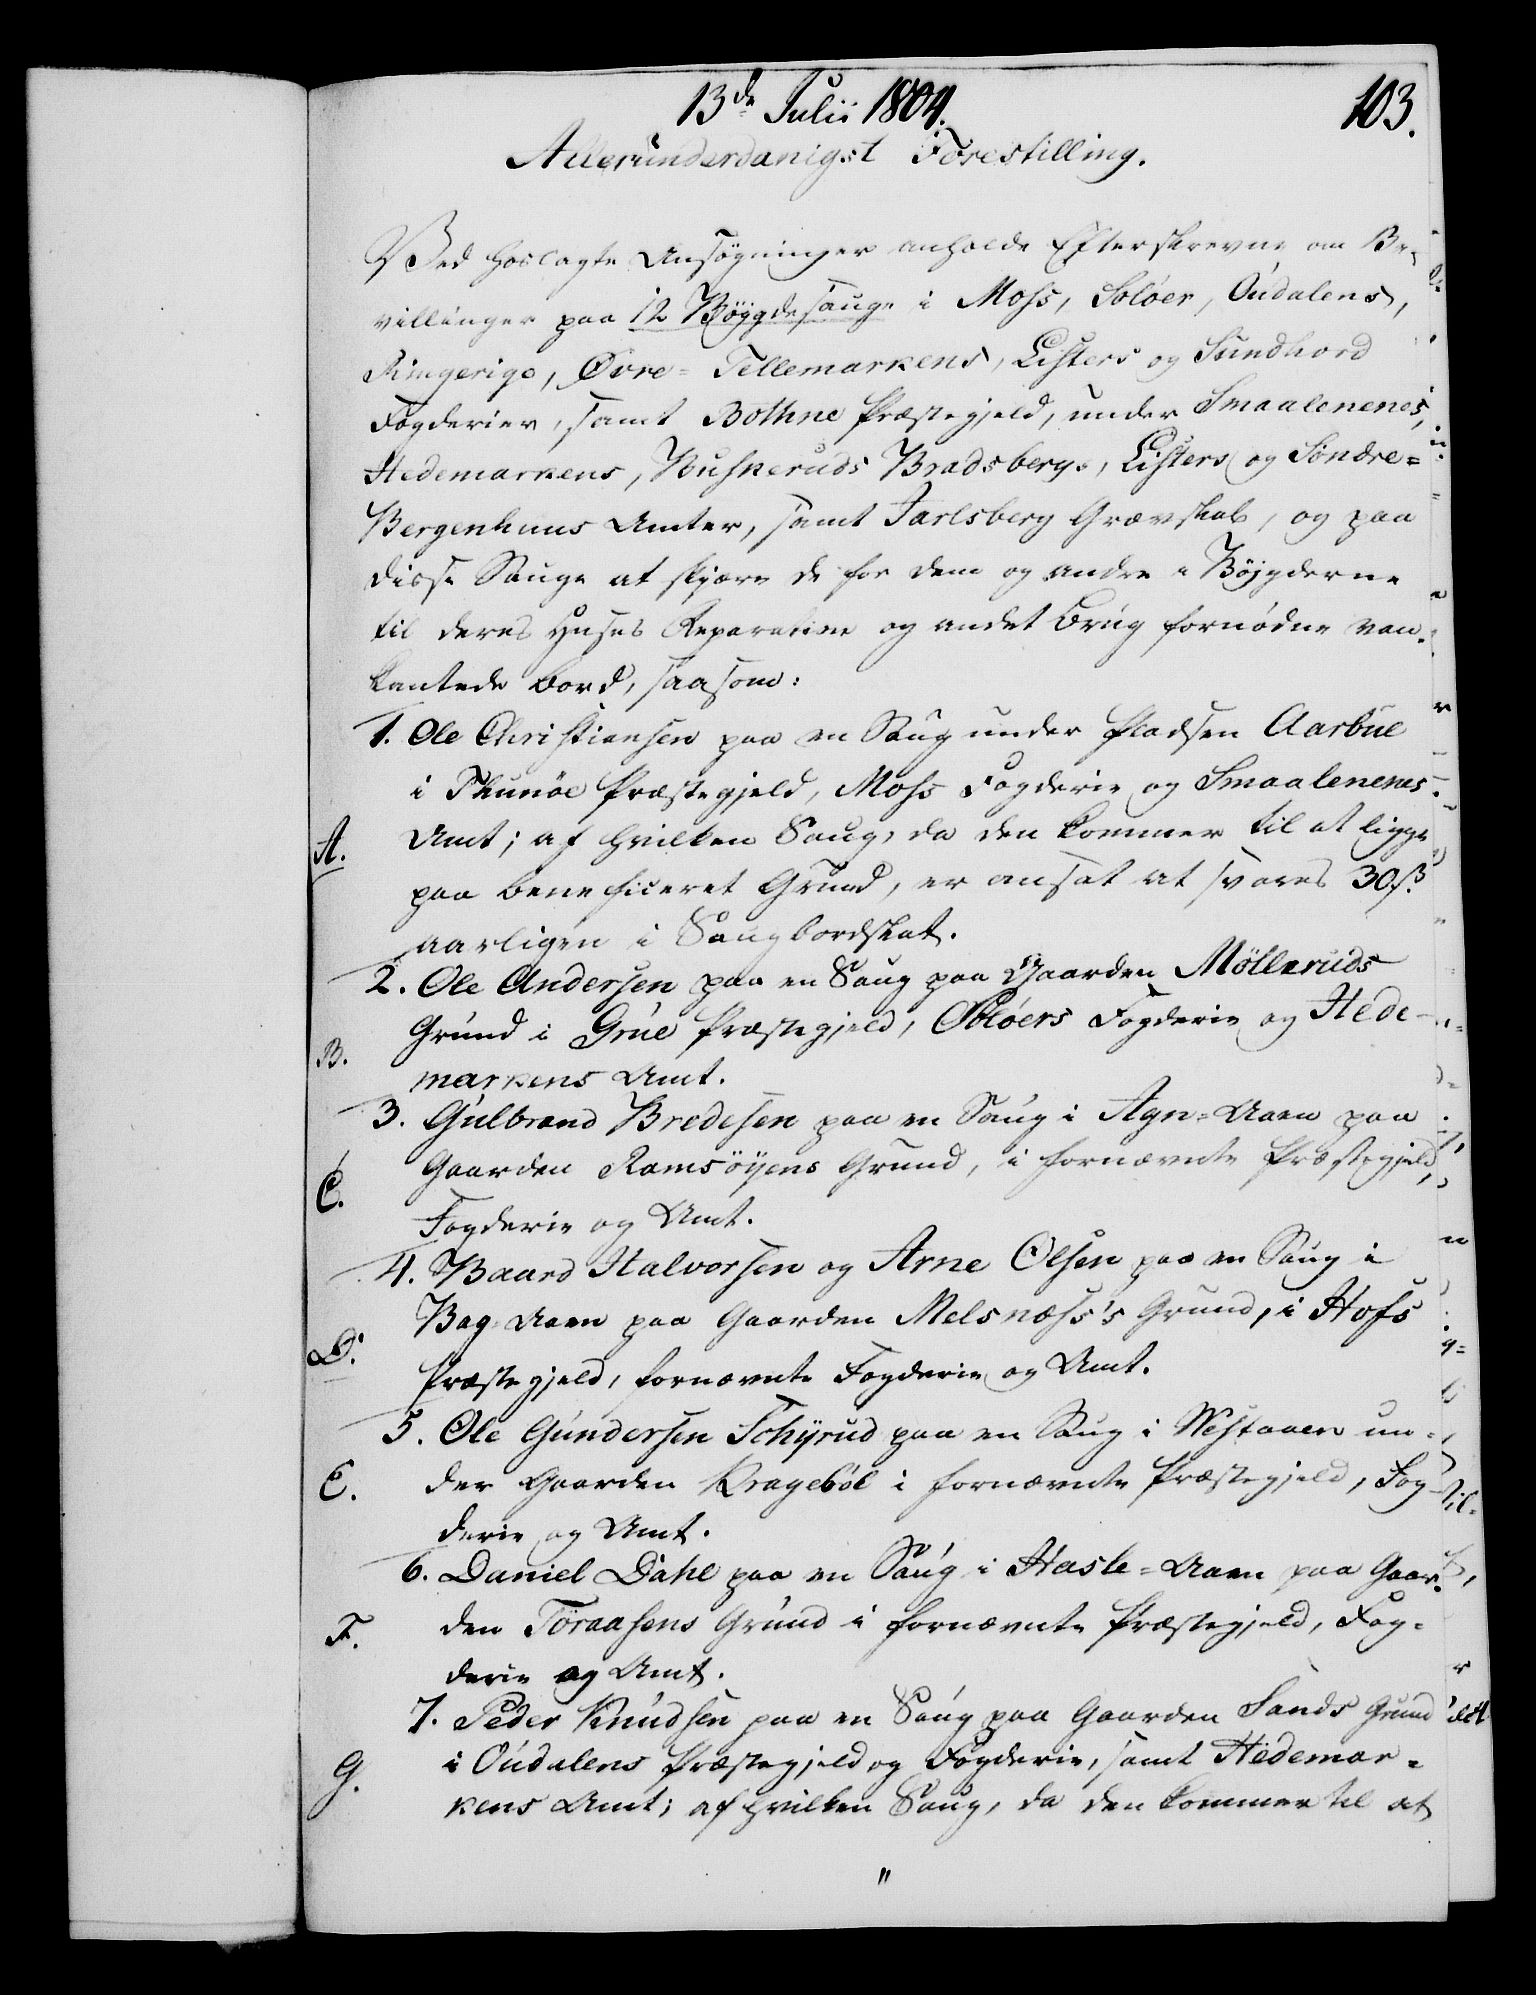 13de Julii 1804.
103.
Allerunderdanigst Forestilling.
Ved hoslagte Ansøgninger anholde Efterskrevne om Be-
villinger paa 12 Bøygdesauge i Moss, Soløer, Oudalens,
Ringerige, Øvre-Tellemarkens, Listers og Sundhord
Fogderier, samt Bothne Præstegjeld, under Smaalenenes,
Hedemarkens, Buskeruds Bradsbergs, Listers og Søndre-
Bergenhuus Amter, samt Jarlsberg Grævskab, og paa
disse Sauge at skjære de for dem og andre i Bøjgderne
til deres Huses Reparation og andet Brug fornødne van-
kantede Bord, saasom:
1. Ole Christiensen paa en Saug under Pladsen Aarbue
i Thunøe Præstegjeld, Moss Fogderie og Smaalenenes
A. Amt; af hvilken Saug, da den kommer til at ligge
paa beneficeret Grund, er ansat at svares 30 ß
aarligen i Saugbordskat.
2. Ole Andersen paa en Saug paa Gaarden Mølleruds
Grund i Grue Præstegjeld, Soløers Fogderie og Hede-
B. markens Amt.
3. Gulbrand Bredesen paa en Saug i Agn-Aaen paa
C. Gaarden Ramsøyens Grund, i fornævnte Præstegjeld,
Fogderie og Amt.
4. Baard Halvorsen og Arne Olsen paa en Saug i
Bag-Aaen paa Gaarden Melsnæss's Grund, i Hofs
D. Præstegjeld, fornævnte Fogderie og Amt.
5. Ole Gundersen Schyrud paa en Saug i Westaaen un-
E. der Gaarden Kragebøl i fornævnte Præstegjeld, Fog-
derie og Amt.
6. Daniel Dahl paa en Saug i Hasle-Aaen paa Gaar-
F. den Toraasens Grund i fornævnte Præstegjeld, Fog-
derie og Amt.
7. Peder Knudsen paa en Saug paa Gaarden Sands Grund
G. i Oudalens Præstegjeld og Fogderie, samt Hedemar-
kens Amt; af hvilken Saug, da den kommer til at
"